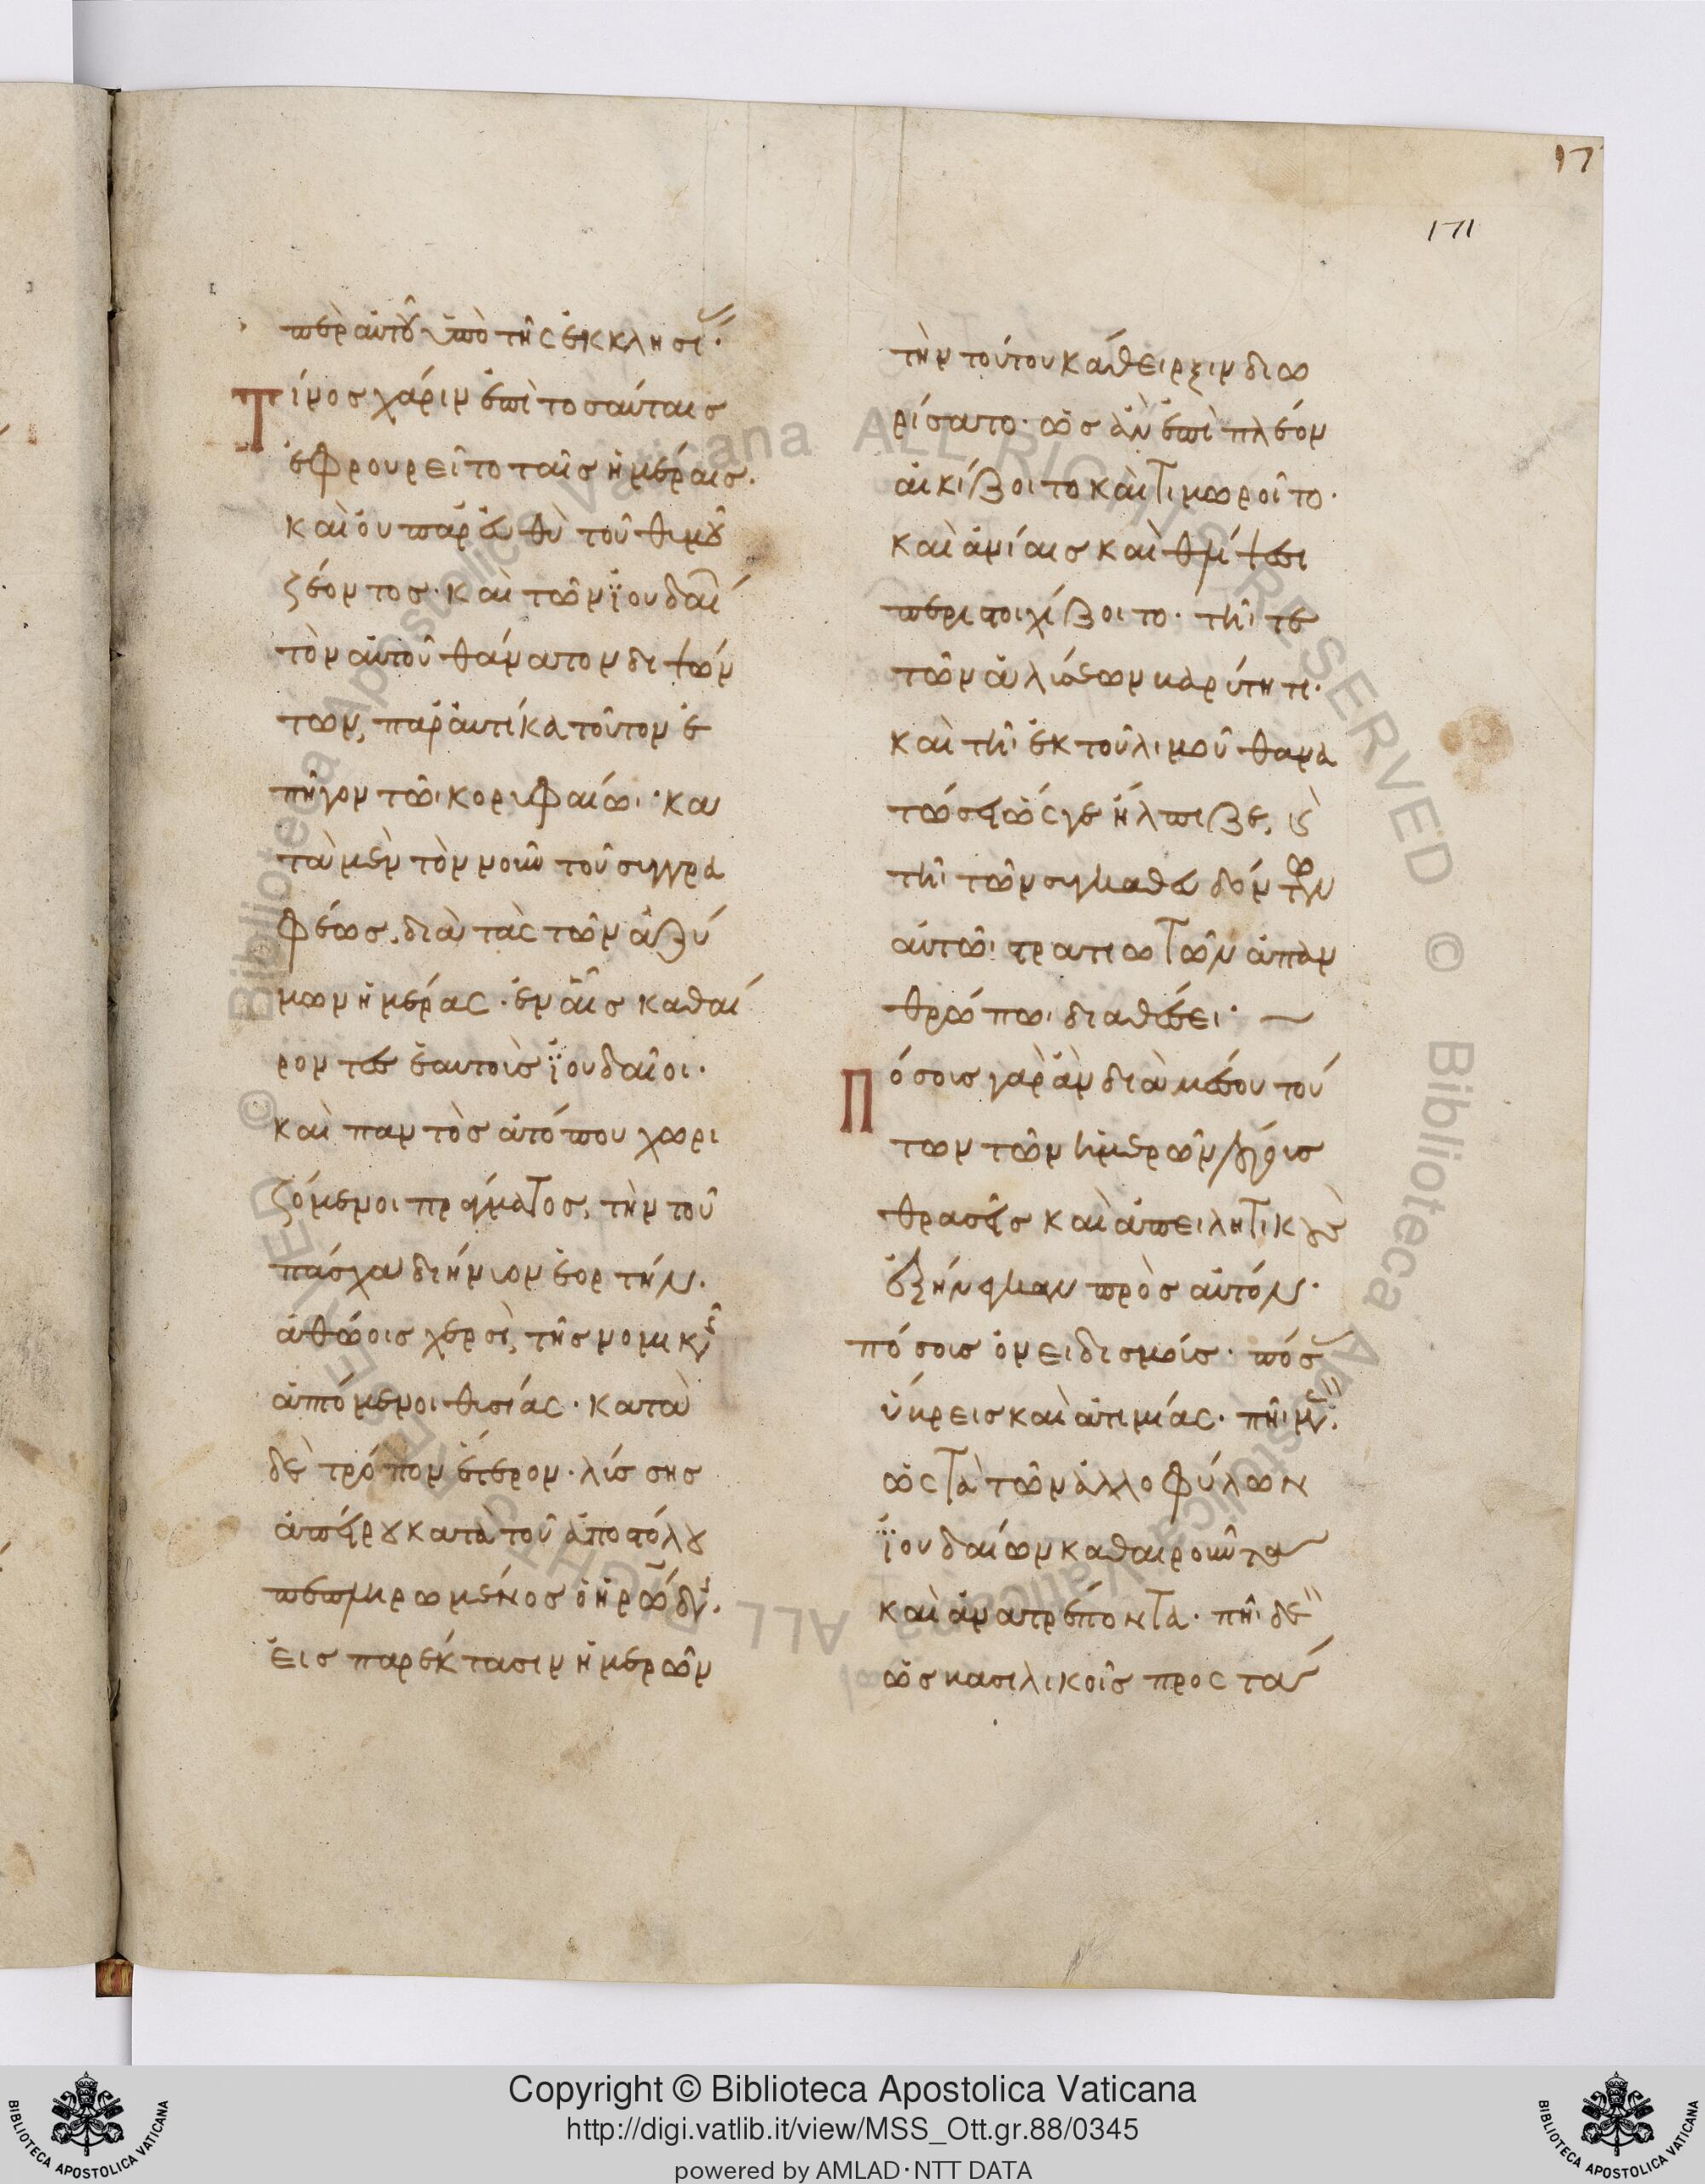 17
171
περὶ αὐτοῦ ὑπὸ τῆς ἐκκλησί
Τίνος χάριν ἐπὶ τοσαύταις
ἐφρουρεῖτο ταῖς ἡμέραις.
καὶ οὐ παρευθὺ τοῦ θυμοῦ
ζέοντος· καὶ τῶν ϊουδαί
τὸν αὐτοῦ θάνατον διψών
των, παραυτίκα τοῦτον ἐ
πῆγον τῶι κορυφαίωι· κα
τὰ μὲν τὸν νοῦν τοῦ συγγρα
φέως. διὰ τὰς τῶν ἀζύ
μων ἡμέρας· ἐν αἷς καθαί
ροντες ἑαυτοὺς ϊουδαῖοι·
καὶ παντὸς ἀτόπου χωρι
ζόμενοι πράγματος, τὴν τοῦ
πάσχα διήνυον ἑορτήν.
ἀθώοις χερσὶ, τῆς νομικῆς
ἁπτόμενοι θυσίας· κατὰ
δὲ τρόπον ἕτερον· λύσσης
ἀπείρου κατὰ τοῦ ἀποστόλου
πεπληρωμένος ὁ ἡρώδης.
εἰς παρέκτασιν ἡμερῶν
τὴν τούτου κάθειρξιν διω
ρίσατο· ὡς ἂν ἐπὶ πλέον
αἰκίζοιτο καὶ τιμωροῖτο·
καὶ ἀνίαις καὶ θλίψεσι
περιστοιχίζοιτο· τῆι τε
τῶν ἁλύσεων βαρύτητι·
καὶ τῆι ἐκ τοῦ λιμοῦ θανα
τώσει ὥς γε ἤλπιζε, καὶ
τῆι τῶν συγκαθευδόντων
αὐτῶι στρατιωτῶν ἀπαν
θρώπωι διαθέσει·
Πόσοις γὰρ ἂν διὰ μέσου τού
των τῶν ἡμερῶν λόγοις
θρασέσι καὶ ἀπειλητικοῖς
ἐξήνεγκαν πρὸς αὐτόν·
πόσοις ὀνειδισμοῖς· πόσ
ὕβρεις καὶ ἀτιμίας· πῆι μὲν
ὡς τὰ τῶν ἀλλοφύλων
ϊουδαίων καθαιροῦντα
καὶ ἀνατρέποντα· πῆι δὲ
ὡς βασιλικοῖς προστά
Copyright © Biblioteca Apostolica Vaticana
http://digi.vatlib.it/view/MSS_Ott.gr.88/0345
powered by AMLAD·NTT DATA
BIBLIOTECA APOSTOLICA VATICANA
BIBLIOTECA APOSTOLICA VATICANA
© Biblioteca Apostolica Vaticana ALL RIGHTS RESERVED
© Biblioteca Apostolica Vaticana ALL RIGHTS RESERVED